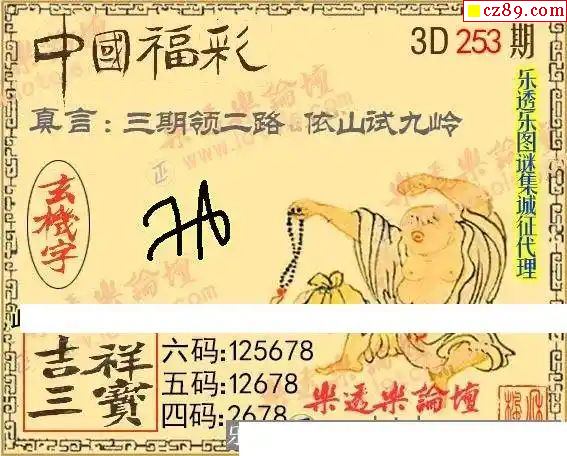 cz89.com
中國福彩
3D 253 期
真言：三期领二路 依山试九岭
乐透乐图谜集城征代理
玄機字
吉祥三寶
六码:125678
五码:12678
四码:2678
樂透樂論壇